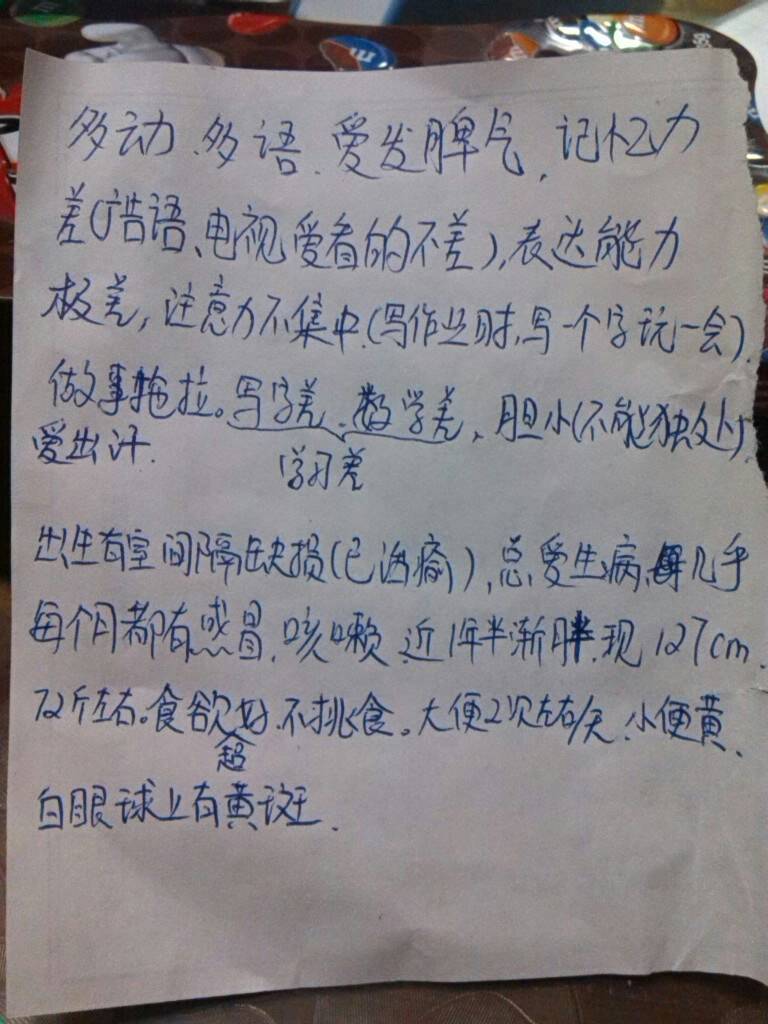 多动、多语、爱发脾气,记忆力
差(广告语、电视爱看的不差),表达能力
极差,注意力不集中.(写作业时,写一个字玩一会).
做事拖拉。写字差、数学差,胆小(不能独处)
学习差
爱出汗.
出生有室间隔缺损(已治癒),总爱生病,几乎
每个月都有感冒,咳嗽.近1年半渐胖.现127cm.
72斤左右。食欲超好.不挑食。大便2次左右/天.小便黄、
白眼球上有黄斑.